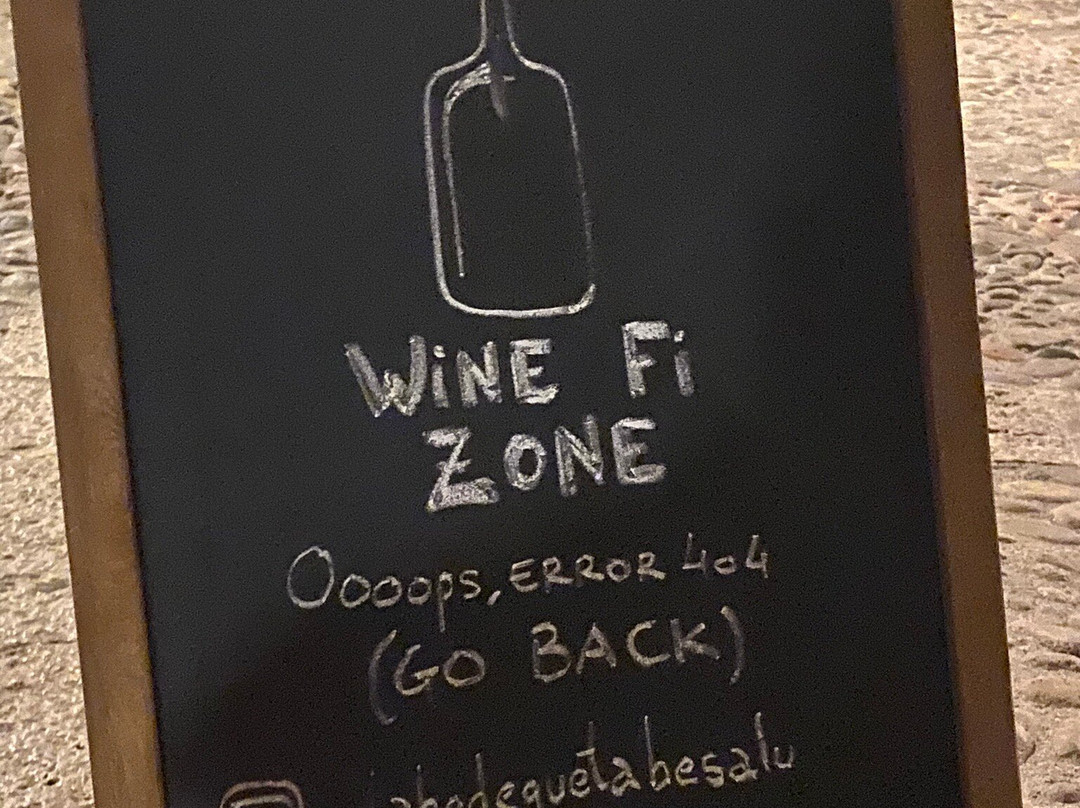 WiNE Fi
ZONE
Oooops, ERROR 404
(GO BACK)
labodeguetabesalu